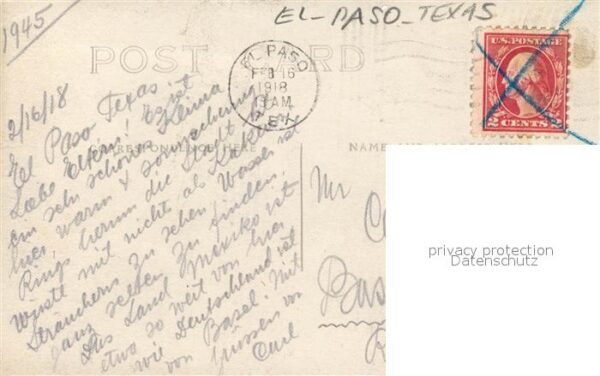 1945
EL-PASO-TEXAS
POST CARD
EL PASO
FEB 16
1918
AM
TEX
U.S. POSTAGE
2 CENTS 2
CORRESPONDENCE HERE
NAME
2/16/18
El Paso Texas
Liebe Eltern! Es ist
ein sehr schönes Klima
hier, warm &
Rings herum die Stadt ist
Wüste mit nichts als Kakteen
Sträuchern zu sehen. Wasser ist
ganz selten zu finden.
Das Land Mexiko ist
etwa so weit von hier
wie Deutschland ist
von Basel. Mit
Grüssen von
Emil
Mr
Bas
privacy protection
Datenschutz